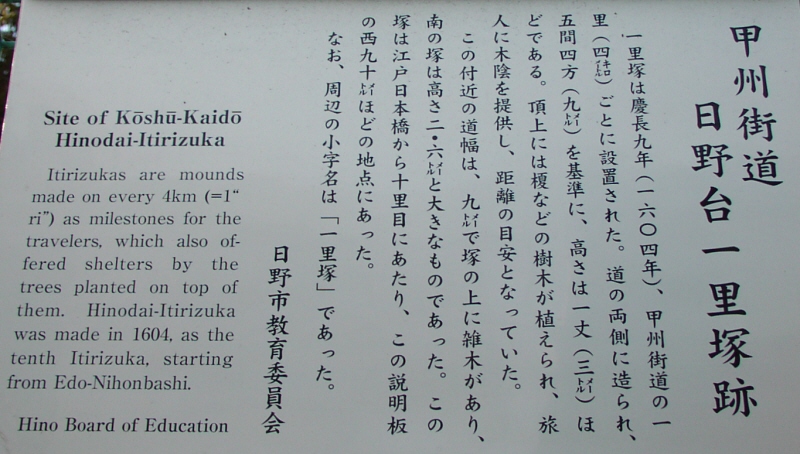 甲州街道
日野台一里塚跡
一里塚は慶長九年(一六〇四年)、甲州街道の一
里(四キロメートル)ごとに設置された。道の両側に造られ、
五間四方(九メートル)を基準に、高さは一丈(三メートル)ほ
どである。頂上には榎などの樹木が植えられ、旅
人に木陰を提供し、距離の目安となっていた。
この付近の道幅は、九メートルで塚の上に雑木があり、
南の塚は高さ二・六メートルと大きなものであった。この
塚は江戸日本橋から十里目にあたり、この説明板
の西九十メートルほどの地点にあった。
なお、周辺の小字名は「一里塚」であった。
日野市教育委員会
Site of Kōshū-Kaidō
Hinodai-Itirizuka
Itirizukas are mounds
made on every 4km (=1“
ri”) as milestones for the
travelers, which also of-
fered shelters by the
trees planted on top of
them. Hinodai-Itirizuka
was made in 1604, as the
tenth Itirizuka, starting
from Edo-Nihonbashi.
Hino Board of Education